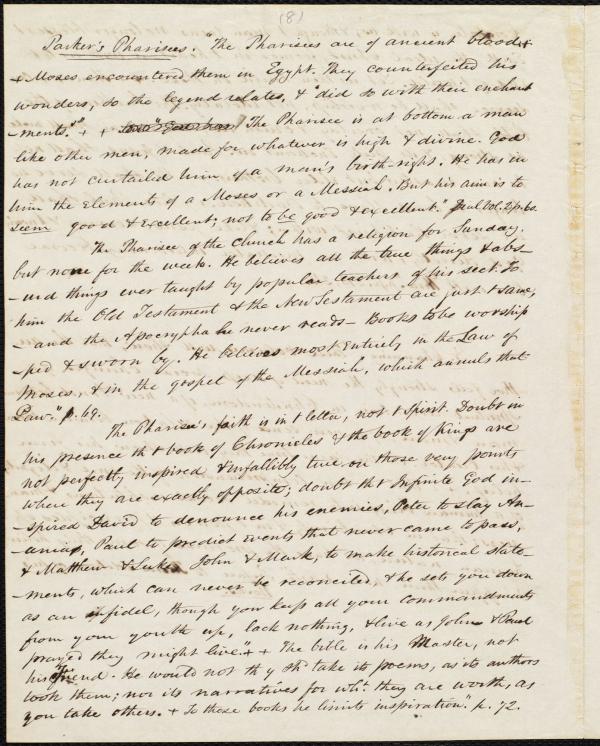 (8)
Parker's Pharisees. "The Pharisees are of ancient blood. +
+ Moses encountered them in Egypt. They counterfeited his
wonders, so the legend relates, & "did so with their enchant
-ments."" + + The Pharisee is at bottom a man
like other men, made for whatever is high & divine. God
has not curtailed him of a man's birth-right. He has in
him the Elements of a Moses or a Messiah. But his aim is to
seem good & Excellent; not to be good & excellent." Dial Vol. 2, p. 60.
The Pharisee of the Church has a religion for Sunday,
but none for the week. He believes all the true things & abs-
-urd things ever taught by popular teachers of his sect. To
him the Old Testament & the New Testament are just + same,
- and the Apocrypha he never reads - Books to be worship
-ped & sworn by. He believes most Entirely in the Law of
Moses, & in the gospel of the Messiah, which annuls that
Law." p. 69.
The Pharisee's faith is in + letter, not + spirit. Doubt in
his presence tht + book of Chronicles & the book of Kings are
not perfectly inspired & infallibly true on those very points
where they are exactly opposite; doubt tht + Infinite God in-
-spired David to denounce his enemies, Peter to slay An-
-anias, Paul to predict events that never came to pass,
& Matthew & Luke, John & Mark, to make historical state-
-ments, which can never be reconciled, & he sets you down
as an infidel, though you keep all your commandments
from your youth up, lack nothing, & live as John & Paul
prayed they might live." + + The bible is his Master, not
his Friend. He would not tht y shd take its poems, as its authors
took them; nor its narratives for wht they are worth, as
you take others. + To these books he limits inspiration." p. 72.